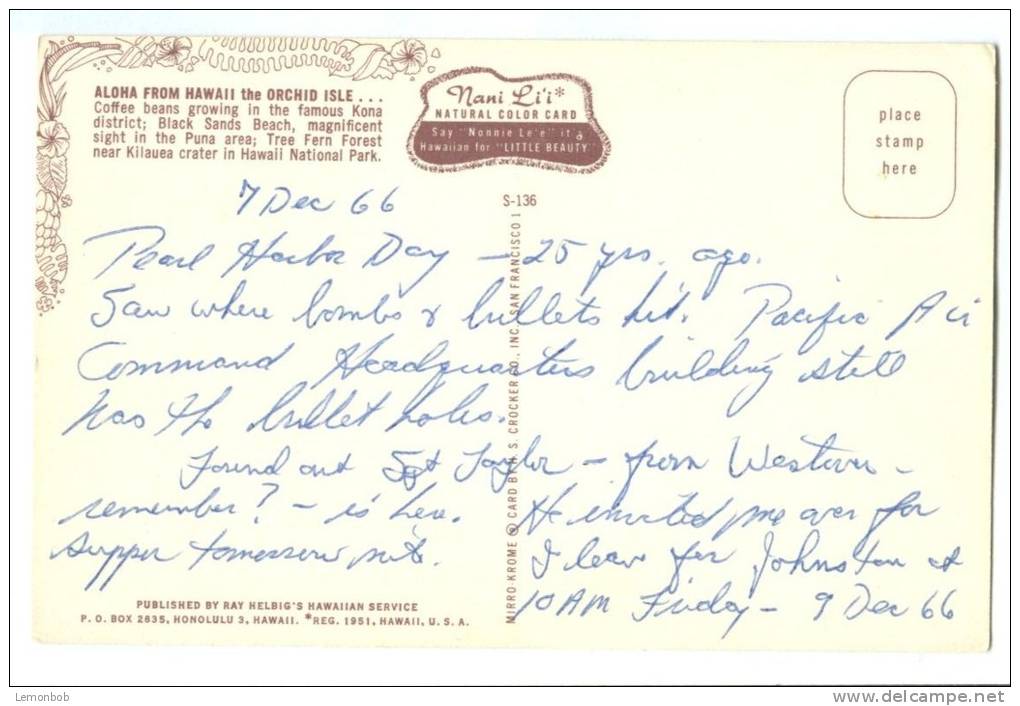 ALOHA FROM HAWAII the ORCHID ISLE . . .
Coffee beans growing in the famous Kona
district; Black Sands Beach, magnificent
sight in the Puna area; Tree Fern Forest
near Kilauea crater in Hawaii National Park.
Nani Li'i*
NATURAL COLOR CARD
Say "Nonnie Le'e" it's
Hawaiian for "LITTLE BEAUTY"
place
stamp
here
S-136
7 Dec 66
Pearl Harbor Day - 25 yrs. ago.
Saw where bombs & bullets hit. Pacific Air
Command Headquarters building still
has the bullet holes.
Found out Sgt Taylor - from Western -
remember? - is here. He invited me over for
supper tomorrow nite. I leave for Johnston at
10 AM Friday - 9 Dec 66
MIRRO-KROME ® CARD BY H. S. CROCKER CO., INC., SAN FRANCISCO 1
PUBLISHED BY RAY HELBIG'S HAWAIIAN SERVICE
P. O. BOX 2835, HONOLULU 3, HAWAII. *REG. 1951, HAWAII, U. S. A.
Lemonbob
www.delcampe.net